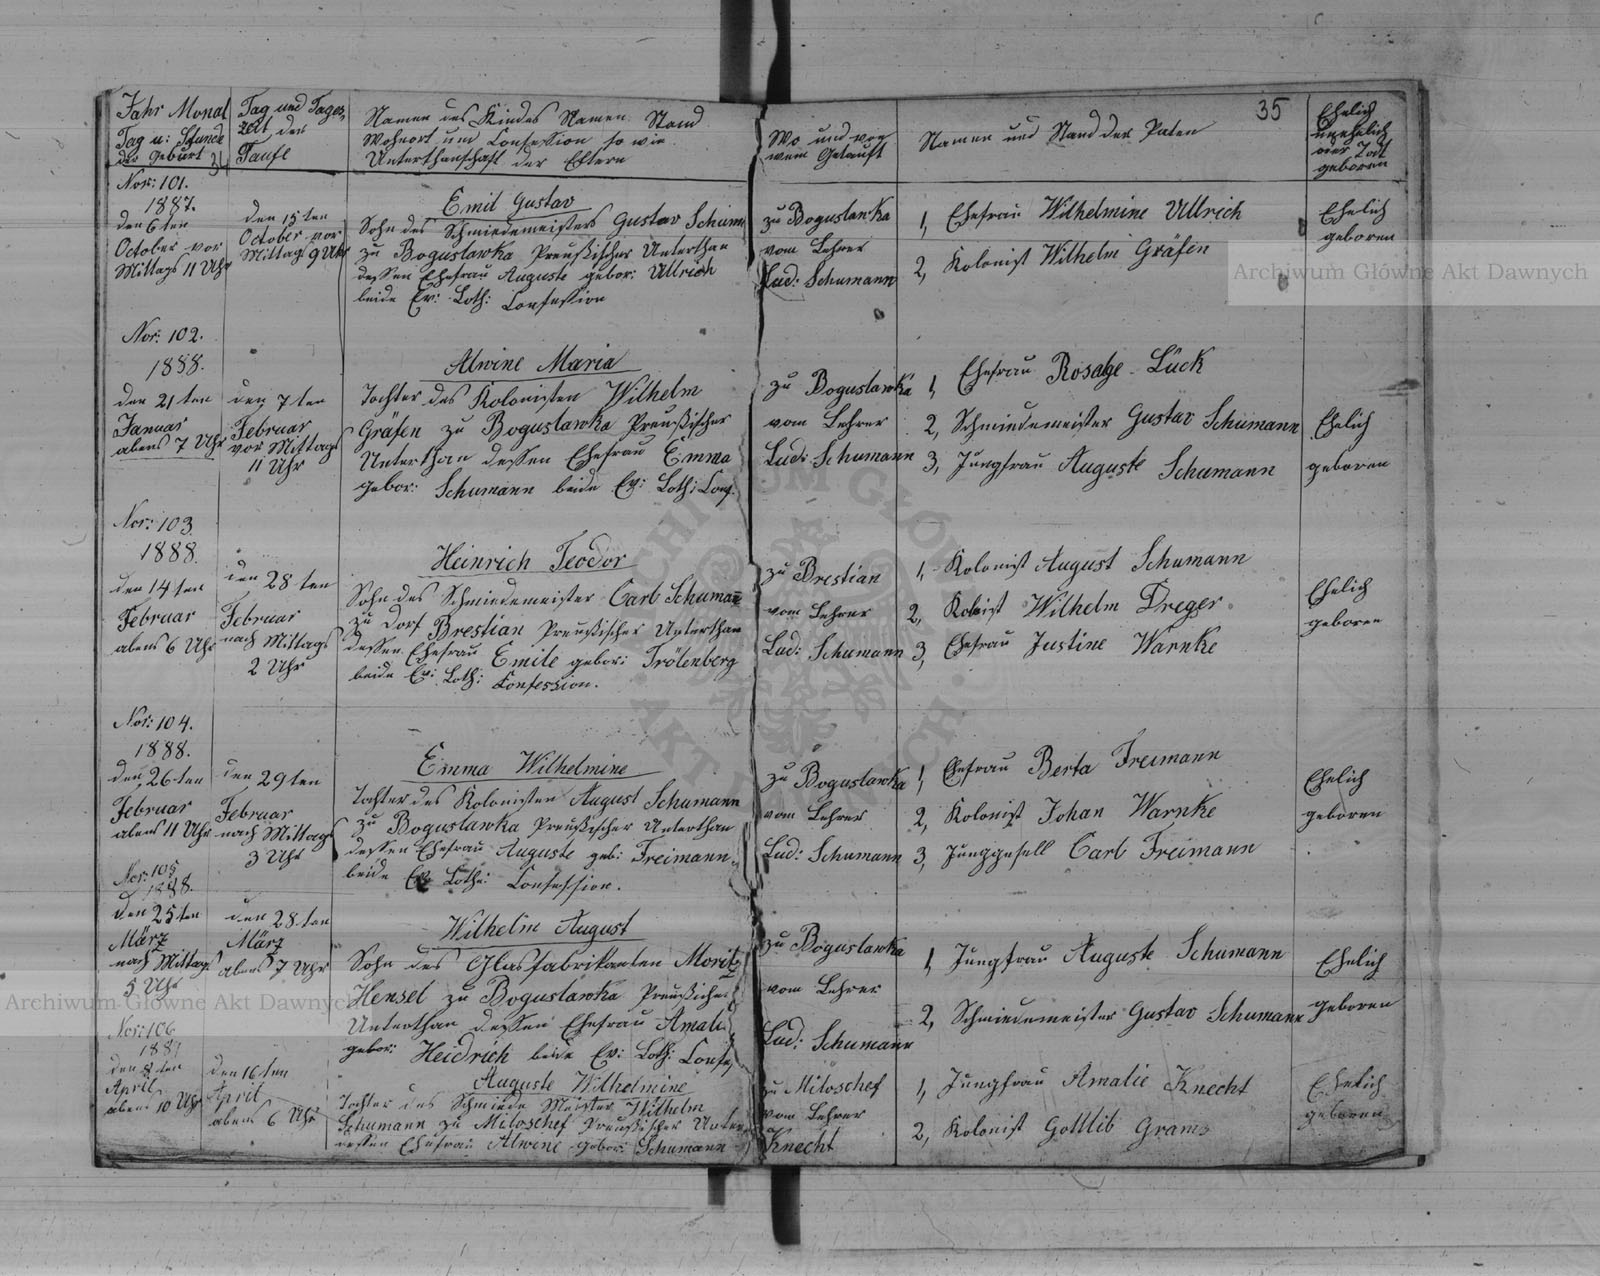 35
Jahr Monat
Tag u: Stunde
der Geburt
Tag und Tages
zeit der
Taufe
Namen des Kindes Namen Stand
Wohnort und Confession so wie
Unterthanschaft der Eltern
Wo und von
wem Getauft
Namen und Stand der Paten
Ehelich
unehelich
oder Tot
geboren
Nor: 101.
1887.
den 6 ten
October vor
Mittags 11 Uhr
den 15 ten
October vor
Mittags 9 Uhr
Emil Gustav
Sohn des Schmiedemeisters Gustav Schum
zu Boguslawka Preußischer Unterthan
dessen Ehefrau Auguste gebor: Ullrich
beide Ev: Loth: Confession
zu Boguslawka
vom Lehrer
Lud: Schumann
1, Ehefrau Wilhelmine Ullrich
2, Kolonist Wilhelm Gräfen
Ehelich
geboren
Nor: 102.
1888.
den 21 ten
Januar
abens 7 Uhr
den 7 ten
Februar
vor Mittags
11 Uhr
Alwine Maria
Tochter des Kolonisten Wilhelm
Gräfen zu Boguslawka Preußischer
Unterthan dessen Ehefrau Emma
gebor: Schumann beide Ev: Loth: Conf.
zu Boguslawka
vom Lehrer
Lud: Schumann
1, Ehefrau Lück
2, Schmiedemeister Gustav Schumann
3, Jungfrau Auguste Schumann
Ehelich
geboren
Nor: 103
1888.
den 14 ten
Februar
abens 6 Uhr
den 28 ten
Februar
nach Mittags
2 Uhr
Heinrich Teodor
Sohn des Schmiedemeister Carl Schumañ
zu Dorf Brestian Preußischer Unterthan
dessen Ehefrau Emile gebor: Trötenberg
beide Ev: Loth: Confession.
zu Brestian
vom Lehrer
Lud: Schumann
1, Kolonist August Schumann
2, Kolonist Wilhelm Dreger
3, Ehefrau Justine Warnke
Ehelich
geboren
Nor: 104.
1888.
den 26 ten
Februar
abens 11 Uhr
den 29 ten
Februar
nach Mittags
3 Uhr
Emma Wilhelmine
Tochter des Kolonisten August Schumann
zu Boguslawka Preußischer Unterthan
dessen Ehefrau Auguste geb: Freimann.
beide Ev Loth: Confession.
zu Boguslawka
vom Lehrer
Lud: Schumann
1, Ehefrau Berta Freimann
2, Kolonist Johan Warnke
3, Junggesell Carl Freimann
Ehelich
geboren
Nor: 105
1888.
den 25 ten
März
nach Mittags
5 Uhr
den 28 ten
März
abens 7 Uhr
Wilhelm August
Sohn des Glasfabrikanten Moritz
Hensel zu Boguslawka Preußicher
Unterthan dessen Ehefrau Amali
gebor: Heidrich beide Ev: Loth: Confe
zu Boguslawka
vom Lehrer
Lud: Schumann
1, Jungfrau Auguste Schumann
2, Schmiedemeister Gustav Schumann
Ehelich
geboren
Nor: 106
den 8 ten
April
abens 10 Uhr
den 16 ten
April
abens 6 Uhr
Auguste Wilhelmine
Tochter des Schmiede Meister Wilhelm
Schumann zu Miloschef Preußischer Unter
dessen Ehefrau Alwine gebor: Schumann
zu Miloschef
vom Lehrer
Knecht
1, Jungfrau Amalie Knecht
2, Kolonist Gottlib Grams
Ehelich
geboren
Archiwum Główne Akt Dawnych
Archiwum Główne Akt Dawnych
ARCHIWUM GŁÓWNE
AKT DAWNYCH